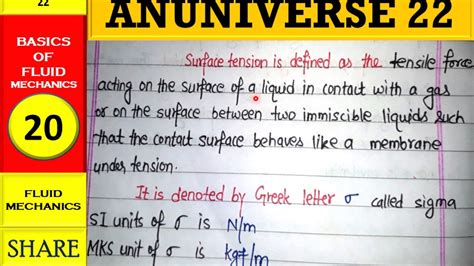 22
ANUNIVERSE 22
BASICS
OF
FLUID
MECHANICS
20
FLUID
MECHANICS
SHARE
Surface tension is defined as the tensile force
acting on the surface of a liquid in contact with a gas
or on the surface between two immiscible liquids such
that the contact surface behaves like a membrane
under tension.
It is denoted by Greek letter σ called sigma
SI units of σ is N/m
MKS unit of σ is kgf/m